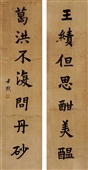 王績但思酣美醞
葛洪不復問丹砂
尹默